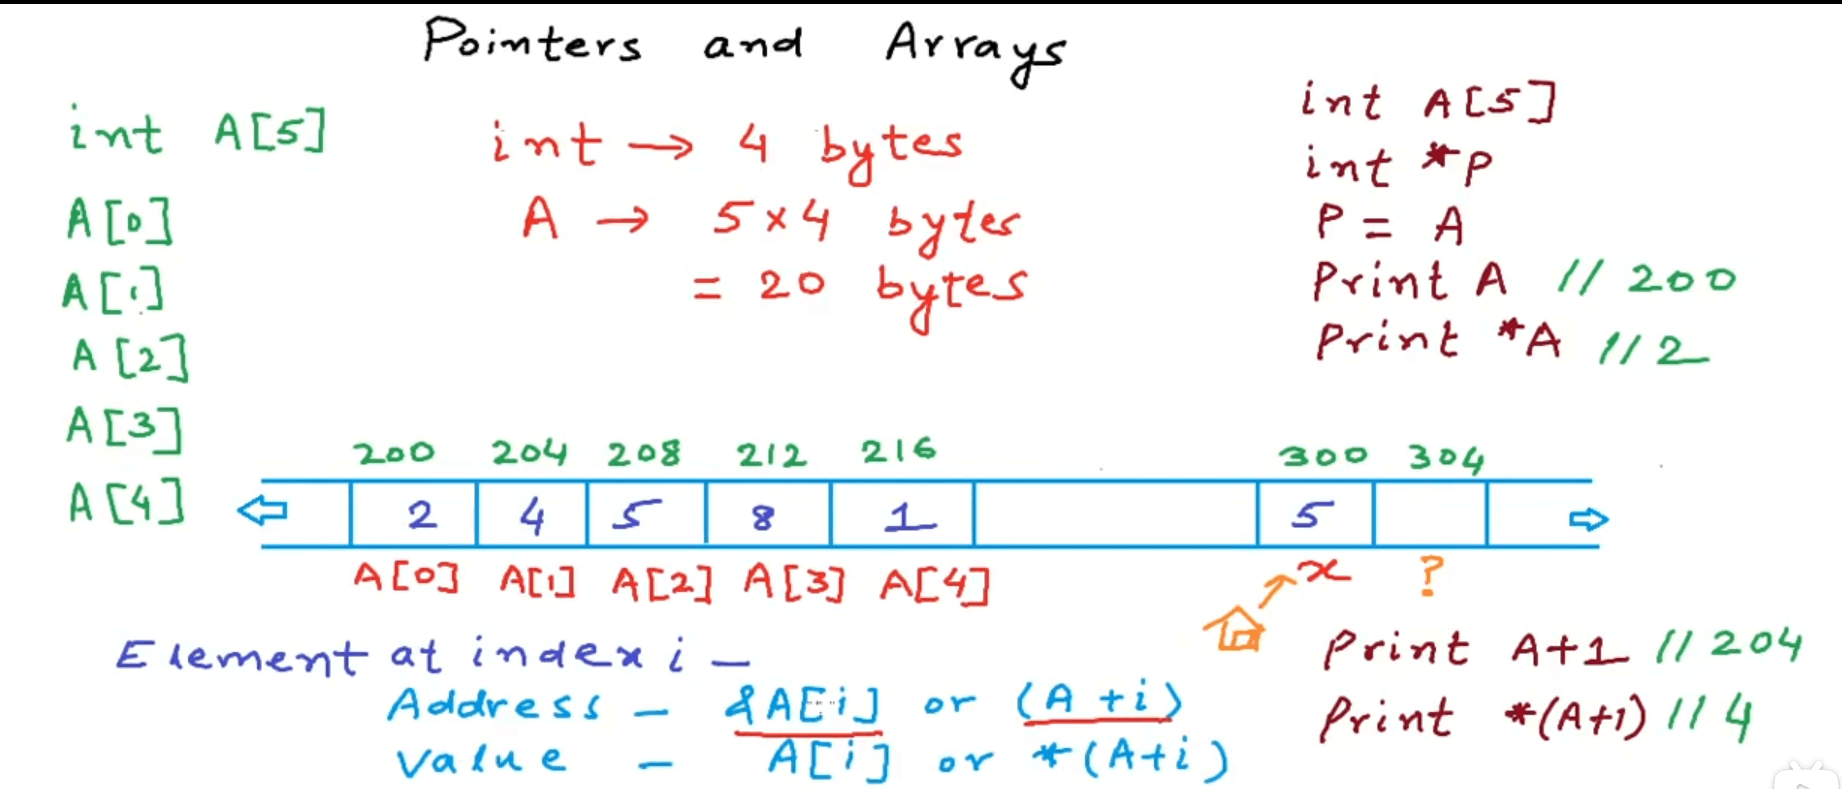 Pointers and Arrays
int A[5]
A[0]
A[1]
A[2]
A[3]
A[4]
int → 4 bytes
A → 5×4 bytes
= 20 bytes
int A[5]
int *p
P = A
Print A // 200
Print *A // 2
200 204 208 212 216 300 304
2 4 5 8 1 5
A[0] A[1] A[2] A[3] A[4] x ?
Element at index i –
Address – &A[i] or (A+i)
Value – A[i] or *(A+i)
Print A+1 // 204
Print *(A+1) // 4